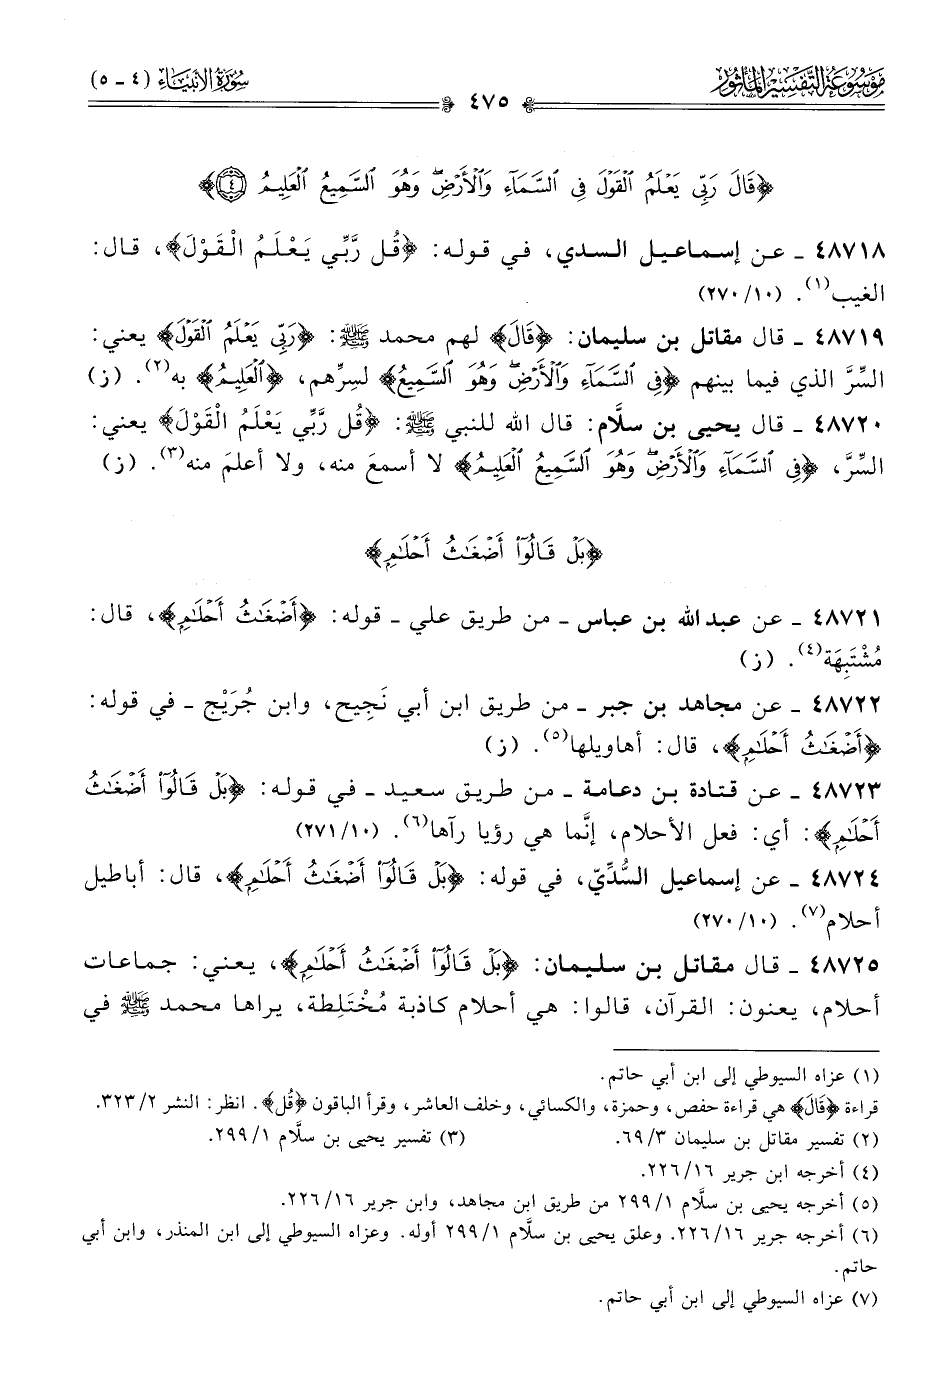 موسوعة التفسير المأثور
سورة الأنبياء (٤ - ٥)
٤٧٥
﴿قَالَ رَبِّي يَعْلَمُ الْقَوْلَ فِي السَّمَاءِ وَالْأَرْضِ وَهُوَ السَّمِيعُ الْعَلِيمُ ٤﴾
٤٨٧١٨ ـ عن إسماعيل السدي، في قوله: ﴿قُل رَّبِّي يَعْلَمُ الْقَوْلَ﴾، قال:
الغيب(١). (١٠/ ٢٧٠)
٤٨٧١٩ ـ قال مقاتل بن سليمان: ﴿قَالَ﴾ لهم محمد ﷺ: ﴿رَبِّي يَعْلَمُ الْقَوْلَ﴾ يعني:
السِّرَّ الذي فيما بينهم ﴿فِي السَّمَاءِ وَالْأَرْضِ وَهُوَ السَّمِيعُ﴾ لسِرِّهم، ﴿الْعَلِيمُ﴾ به(٢). (ز)
٤٨٧٢٠ ـ قال يحيى بن سلَّام: قال الله للنبي ﷺ: ﴿قُل رَّبِّي يَعْلَمُ الْقَوْلَ﴾ يعني:
السِّرَّ، ﴿فِي السَّمَاءِ وَالْأَرْضِ وَهُوَ السَّمِيعُ الْعَلِيمُ﴾ لا أسمعَ منه، ولا أعلمَ منه(٣). (ز)
﴿بَلْ قَالُوا أَضْغَاثُ أَحْلَامٍ﴾
٤٨٧٢١ ـ عن عبد الله بن عباس ـ من طريق علي ـ قوله: ﴿أَضْغَاثُ أَحْلَامٍ﴾، قال:
مُشْتَبِهَة(٤). (ز)
٤٨٧٢٢ ـ عن مجاهد بن جبر ـ من طريق ابن أبي نَجِيح، وابن جُرَيْج ـ في قوله:
﴿أَضْغَاثُ أَحْلَامٍ﴾، قال: أهاويلها(٥). (ز)
٤٨٧٢٣ ـ عن قتادة بن دعامة ـ من طريق سعيد ـ في قوله: ﴿بَلْ قَالُوا أَضْغَاثُ
أَحْلَامٍ﴾: أي: فعل الأحلام، إنَّما هي رؤيا رآها(٦). (١٠/ ٢٧١)
٤٨٧٢٤ ـ عن إسماعيل السُّدِّيّ، في قوله: ﴿بَلْ قَالُوا أَضْغَاثُ أَحْلَامٍ﴾، قال: أباطيل
أحلام(٧). (١٠/ ٢٧٠)
٤٨٧٢٥ ـ قال مقاتل بن سليمان: ﴿بَلْ قَالُوا أَضْغَاثُ أَحْلَامٍ﴾، يعني: جماعات
أحلام، يعنون: القرآن، قالوا: هي أحلام كاذبة مُخْتَلِطة، يراها محمد ﷺ في
(١) عزاه السيوطي إلى ابن أبي حاتم.
قراءة ﴿قَالَ﴾ هي قراءة حفص، وحمزة، والكسائي، وخلف العاشر، وقرأ الباقون ﴿قُل﴾. انظر: النشر ٢/ ٣٢٣.
(٢) تفسير مقاتل بن سليمان ٣/ ٦٩. (٣) تفسير يحيى بن سلَّام ١/ ٢٩٩.
(٤) أخرجه ابن جرير ١٦/ ٢٢٦.
(٥) أخرجه يحيى بن سلَّام ١/ ٢٩٩ من طريق ابن مجاهد، وابن جرير ١٦/ ٢٢٦.
(٦) أخرجه جرير ١٦/ ٢٢٦. وعلق يحيى بن سلَّام ١/ ٢٩٩ أوله. وعزاه السيوطي إلى ابن المنذر، وابن أبي
حاتم.
(٧) عزاه السيوطي إلى ابن أبي حاتم.